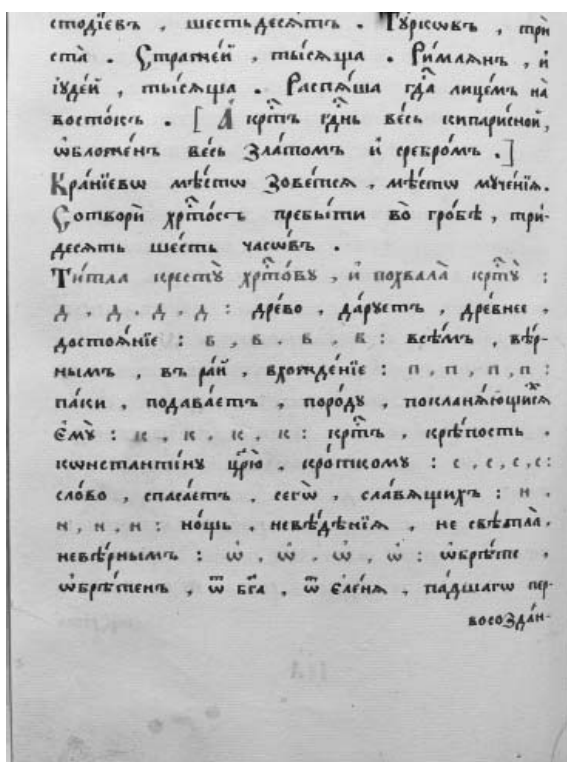 стодіевъ , шестьдесѧтъ . Тꙋ́рковъ , трѝ
ста̀ . Стражей , ты́сѧща . Ри́млѧнъ , и҆
і҆ꙋде́й , ты́сѧща . Распѧ́ша гдⷭ҇а лице́мъ на̀
восто́къ . [ А҆ крⷭ҇тъ гдⷭ҇нь ве́сь кипари́сной ,
ѡ҆бложе́нъ ве́сь зла́томъ и҆ сребро́мъ . ]
Кра́нїевѡ мѣ́стѡ зове́тсѧ , мѣ́стѡ мꙋче́нїѧ .
Сотворѝ хрⷭ҇то́съ пребы́ти во̀ гро́бѣ , три́-
десѧть ше́сть часѡ́въ .
Ти́тла кресту̀ хрⷭ҇то́вꙋ , и҆ похвала̀ крⷭ҇тꙋ̀ :
д , д , д , д : дре́во , да́рꙋетъ , дре́внее ,
достоѧ́нїе : в , в , в , в : всѣ́мъ , вѣ́р-
нымъ , въ ра́й , вхожде́нїе : п , п , п , п :
па́ки , подава́етъ , поро́дꙋ , покланѧ́ющийсѧ
є҆мꙋ̀ : к , к , к , к : крⷭ҇тъ , крѣ́пость ,
кѡнстанти́нꙋ цр҃ю̀ , кро́ткомꙋ : с , с , с , с :
сло́во , спаса́етъ , сегѡ̀ , сла́вѧщихъ : н ,
н , н , н : но́щь , невѣ́дѣнїѧ , не свѣ́тла ,
невѣ́рнымъ : ѡ҆ , ѡ҆ , ѡ҆ , ѡ҆ : ѡ҆брѣ́те ,
ѡ҆брѣ́тенъ , ѿ бг҃а , ѿ є҆ле́нѧ , па́дшагѡ пер-
восозда́н-